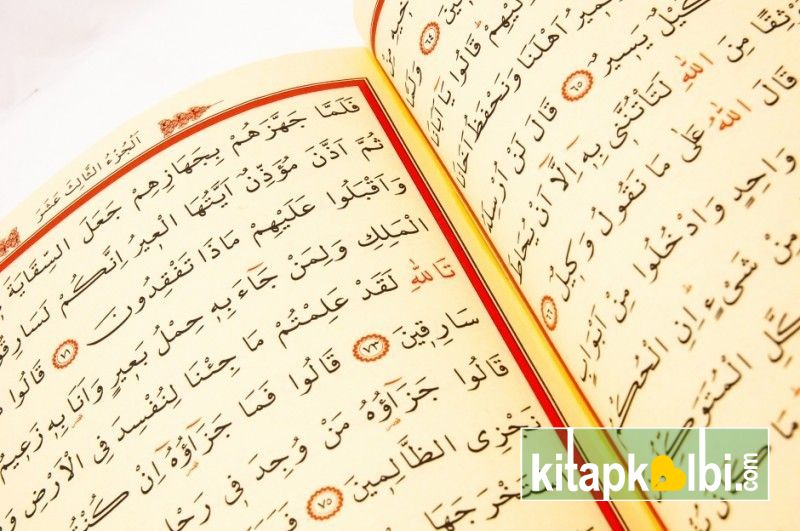 ٱلْجُزْءُ الثَّالِثَ عَشَرَ
٦٤ وَلَمَّا
اِلَيْهِمْ قَالُوا يَٓا اَبَانَا
اَهْلَنَا وَنَحْفَظُ اَخَانَا
كَيْلٌ يَس۪يرٌ ٦٥ قَالَ لَنْ
مِنَ اللّٰهِ لَتَأْتُنَّن۪ي بِه۪ٓ اِلَّٓا اَنْ يُحَاطَ
قَالَ اللّٰهُ عَلٰى مَا نَقُولُ وَك۪يلٌ ٦٦
وَاحِدٍ وَادْخُلُوا مِنْ اَبْوَابٍ
مِنْ شَيْءٍ اِنِ
فَلَمَّا جَهَّزَهُمْ بِجَهَازِهِمْ جَعَلَ السِّقَايَةَ
ثُمَّ اَذَّنَ مُؤَذِّنٌ اَيَّتُهَا الْع۪يرُ اِنَّكُمْ
وَاَقْبَلُوا عَلَيْهِمْ مَاذَا تَفْقِدُونَ ٧١ قَالُوا
الْمَلِكِ وَلِمَنْ جَٓاءَ بِه۪ حِمْلُ بَع۪يرٍ وَاَنَا بِه۪ زَع۪يمٌ
تَاللّٰهِ لَقَدْ عَلِمْتُمْ مَا جِئْنَا لِنُفْسِدَ فِي الْاَرْضِ
سَارِق۪ينَ ٧٣ قَالُوا فَمَا جَزَٓاؤُ۬هُٓ اِنْ
قَالُوا جَزَٓاؤُ۬هُ مَنْ وُجِدَ ف۪ي
نَجْزِي الظَّالِم۪ينَ ٧٥
kitapkalbi.com